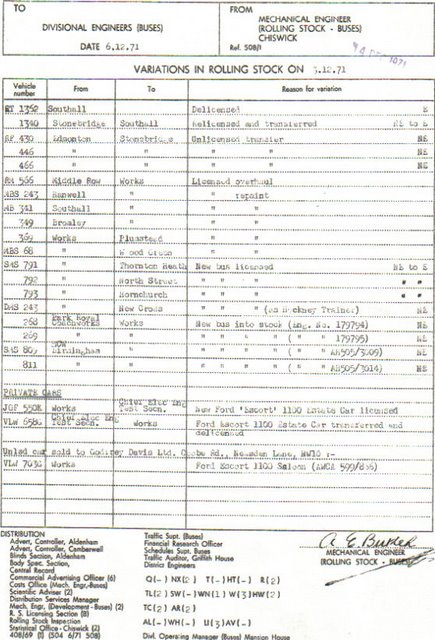 TO
FROM
DIVISIONAL ENGINEERS (BUSES)
MECHANICAL ENGINEER
(ROLLING STOCK - BUSES)
CHISWICK
DATE 6.12.71
Ref. 508/1
VARIATIONS IN ROLLING STOCK ON 3.12.71
Vehicle number From To Reason for variation
RT 1362 Southall Delicensed E
1340 Stonebridge Southall Relicensed and transferred NE to E
RF 430 Edmonton Stonebridge Unlicensed transfer NE
446 " " " " NE
466 " " " " NE
RM 566 Middle Row Works Licensed overhaul
MBS 243 Hanwell " " repaint
MB 341 Southall " " "
349 Bromley " " "
369 Works Plumstead " "
MBS 68 " Wood Green " "
SMS 791 " Thornton Heath New bus licensed NE to E
792 " North Street " " " " "
793 " Hornchurch " " " " "
DMS 243 " New Cross " " " (as Hackney Trainer) NE
268 Park Royal Coachworks Works New bus into stock (Eng. No. 179794) NE
269 " " " " " " ( " " 179795) NE
SMS 809 Birmingham " " " " " ( " " AH505/3009) NE
811 " " " " " " ( " " AH505/3014) NE
PRIVATE CARS
JGF 550E Works Chief Elec Eng Test Secn. New Ford 'Escort' 1100 Estate Car licensed
VLW 658G Chief Elec Eng Test Secn. Works Ford Escort 1100 Estate Car transferred and
delicensed
Car sold to Godfrey Davis Ltd. Rd., Neasden Lane, NW10 :-
VLW 703G Works Ford Escort 1100 Saloon
DISTRIBUTION
Advert, Controller, Aldenham
Advert, Controller, Camberwell
Blinds Section, Aldenham
Body Spec. Section,
Central Record
Commercial Advertising Officer (6)
Costs Office (Mech. Engr.-Buses)
Scientific Adviser (2)
Distribution Services Manager
Mech. Engr, (Development - Buses) (2)
R. S. Licensing Section (8)
Rolling Stock Inspection
Statistical Office - Chiswick (2)
408/69 (1) (504 6/71 508)
Traffic Supt. (Buses)
Financial Research Officer
Schedules Supt. Buses
Traffic Auditor, Griffith House
District Engineers
Q(-) NX(2) T(-) HT(-) R(2)
TL(2) SW(-) WN(1) W(3) HW(2)
TC(2) AR(2)
AL(-) WH(-) U(3) AV(-)
Divl. Operating Manager (Buses) Mansion House
A. E. Butler
MECHANICAL ENGINEER
(ROLLING STOCK - BUSES)